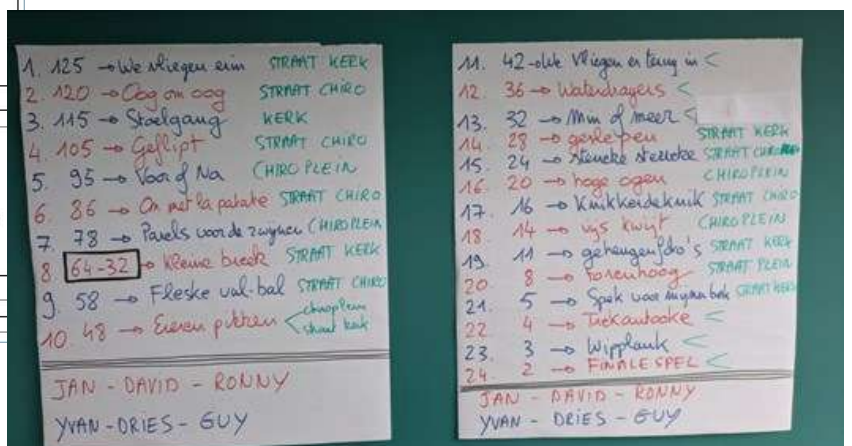 1. 125 → We vliegen erin STRAAT KERK
2. 120 → Oog om oog STRAAT CHIRO
3. 115 → Stoelgang KERK
4. 105 → Geflipt STRAAT CHIRO
5. 95 → Voor of Na CHIROPLEIN
6. 86 → On met la patate STRAAT CHIRO
7. 78 → Parels voor de zwijnen CHIROPLEIN
8. 64-32 → Kleine break STRAAT KERK
9. 58 → Fleske val-bal STRAAT CHIRO
10. 48 → Eieren pikken < chiroplein
straat kerk
JAN - DAVID - RONNY
YVAN - DRIES - GUY
11. 42 → We vliegen er terug in <
12. 36 → Waterdragers <
13. 32 → Min of meer <
14. 28 → geslepen STRAAT KERK
15. 24 → STRAAT
16. 20 → hoge ogen CHIROPLEIN
17. 16 → Knikkerdeknik STRAAT CHIRO
18. 14 → vijs kwijt CHIROPLEIN
19. 11 → STRAAT KERK
20. 8 → Torenhoog STRAAT PLEIN
21. 5 → Spek voor mijn bek STRAAT KERK
22. 4 → <
23. 3 → Wipplank <
24. 2 → FINALE SPEL <
JAN - DAVID - RONNY
YVAN - DRIES - GUY